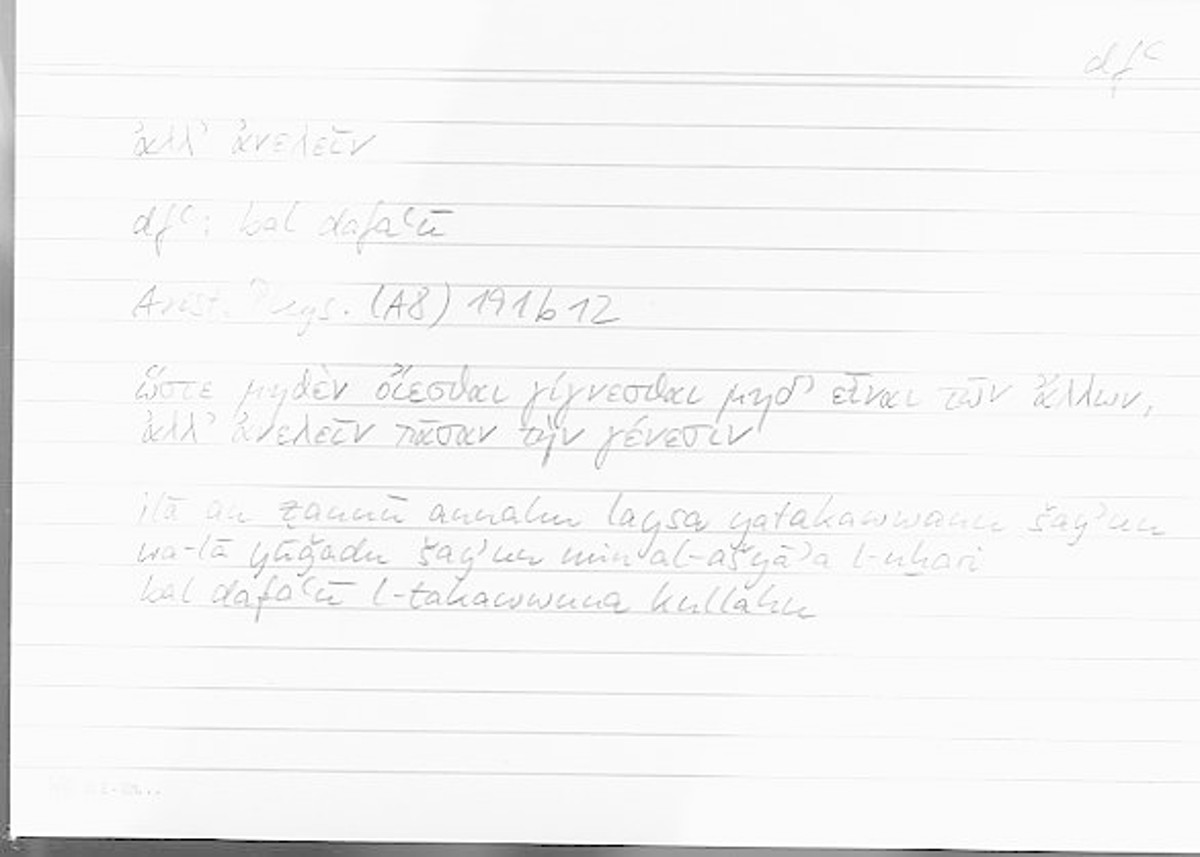 dfʿ
ἀλλ’ ἀνελεῖν
dfʿ: bal dafaʿū
Arist. Phys. (A8) 191b12
ὥστε μηδὲν οἴεσθαι γίγνεσθαι μηδ’ εἶναι τῶν ἄλλων,
ἀλλ’ ἀνελεῖν πᾶσαν τὴν γένεσιν
ilā an ẓannū annahu laysa yatakawwanu šayʾun
wa-lā yūǧadu šayʾun min al-ašyāʾa l-uḫari
bal dafaʿū l-takawwuna kullahu